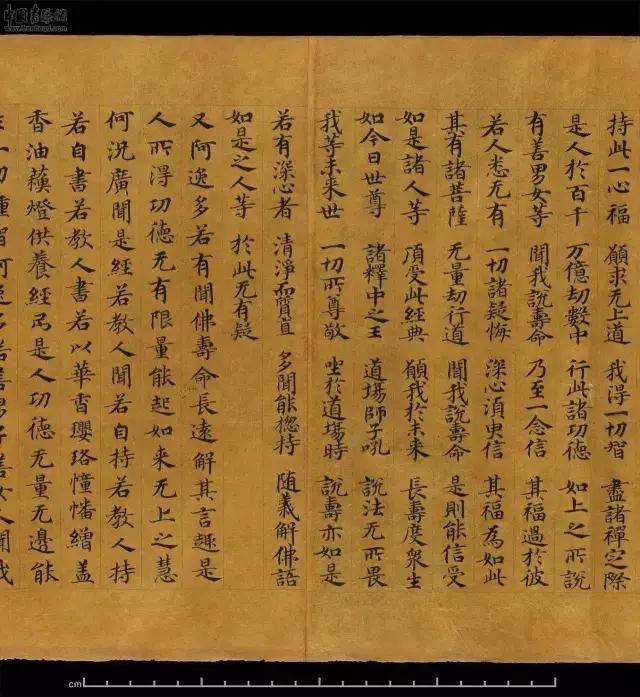 中国书法网
持此一心福 願求无上道 我得一切智 盡諸禪之際
是人於百千 万億劫數中 行此諸功德 如上之所說
有善男女等 聞我說壽命 乃至一念信 其福過於彼
若人悉无有 一切諸疑悔 深心須臾信 其福為如此
其有諸菩薩 无量劫行道 聞我說壽命 是則能信受
如是諸人等 頂受此經典 願我於未来 長壽度衆生
如今日世尊 諸釋中之王 道場師子吼 說法无所畏
我等未来世 一切所尊敬 坐於道場時 說壽亦如是
若有深心者 清淨而質直 多聞能揔持 随義解佛語
如是之人等 於此无有疑
又阿逸多若有聞佛壽命長遠解其言趣是
人所得功德无有限量能起如来无上之慧
何況廣聞是經若教人聞若自持若教人持
若自書若教人書若以華香瓔珞幢幡繒盖
香油蘓燈供養經卷是人功德无量无邊能
cm